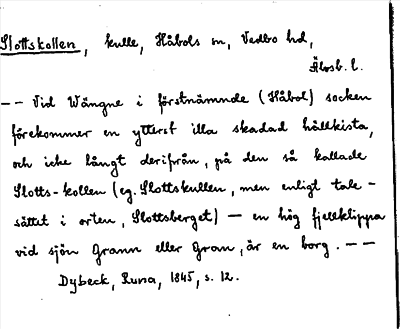 Slottskollen, kulle, Håbols sn, Vedbo hd,
Älvsb. l.
-- Vid Wångne i förstnämnde (Håbol) socken
förekommer en ytterst illa skadad hällkista,
och icke långt derifrån, på den så kallade
Slotts-kollen (eg. Slottskullen, men enligt tale-
sättet i orten, Slottsberget) — en hög fjellklippa
vid sjön Grann eller Gran, är en borg. --
Dybeck, Runa, 1845, s. 12.